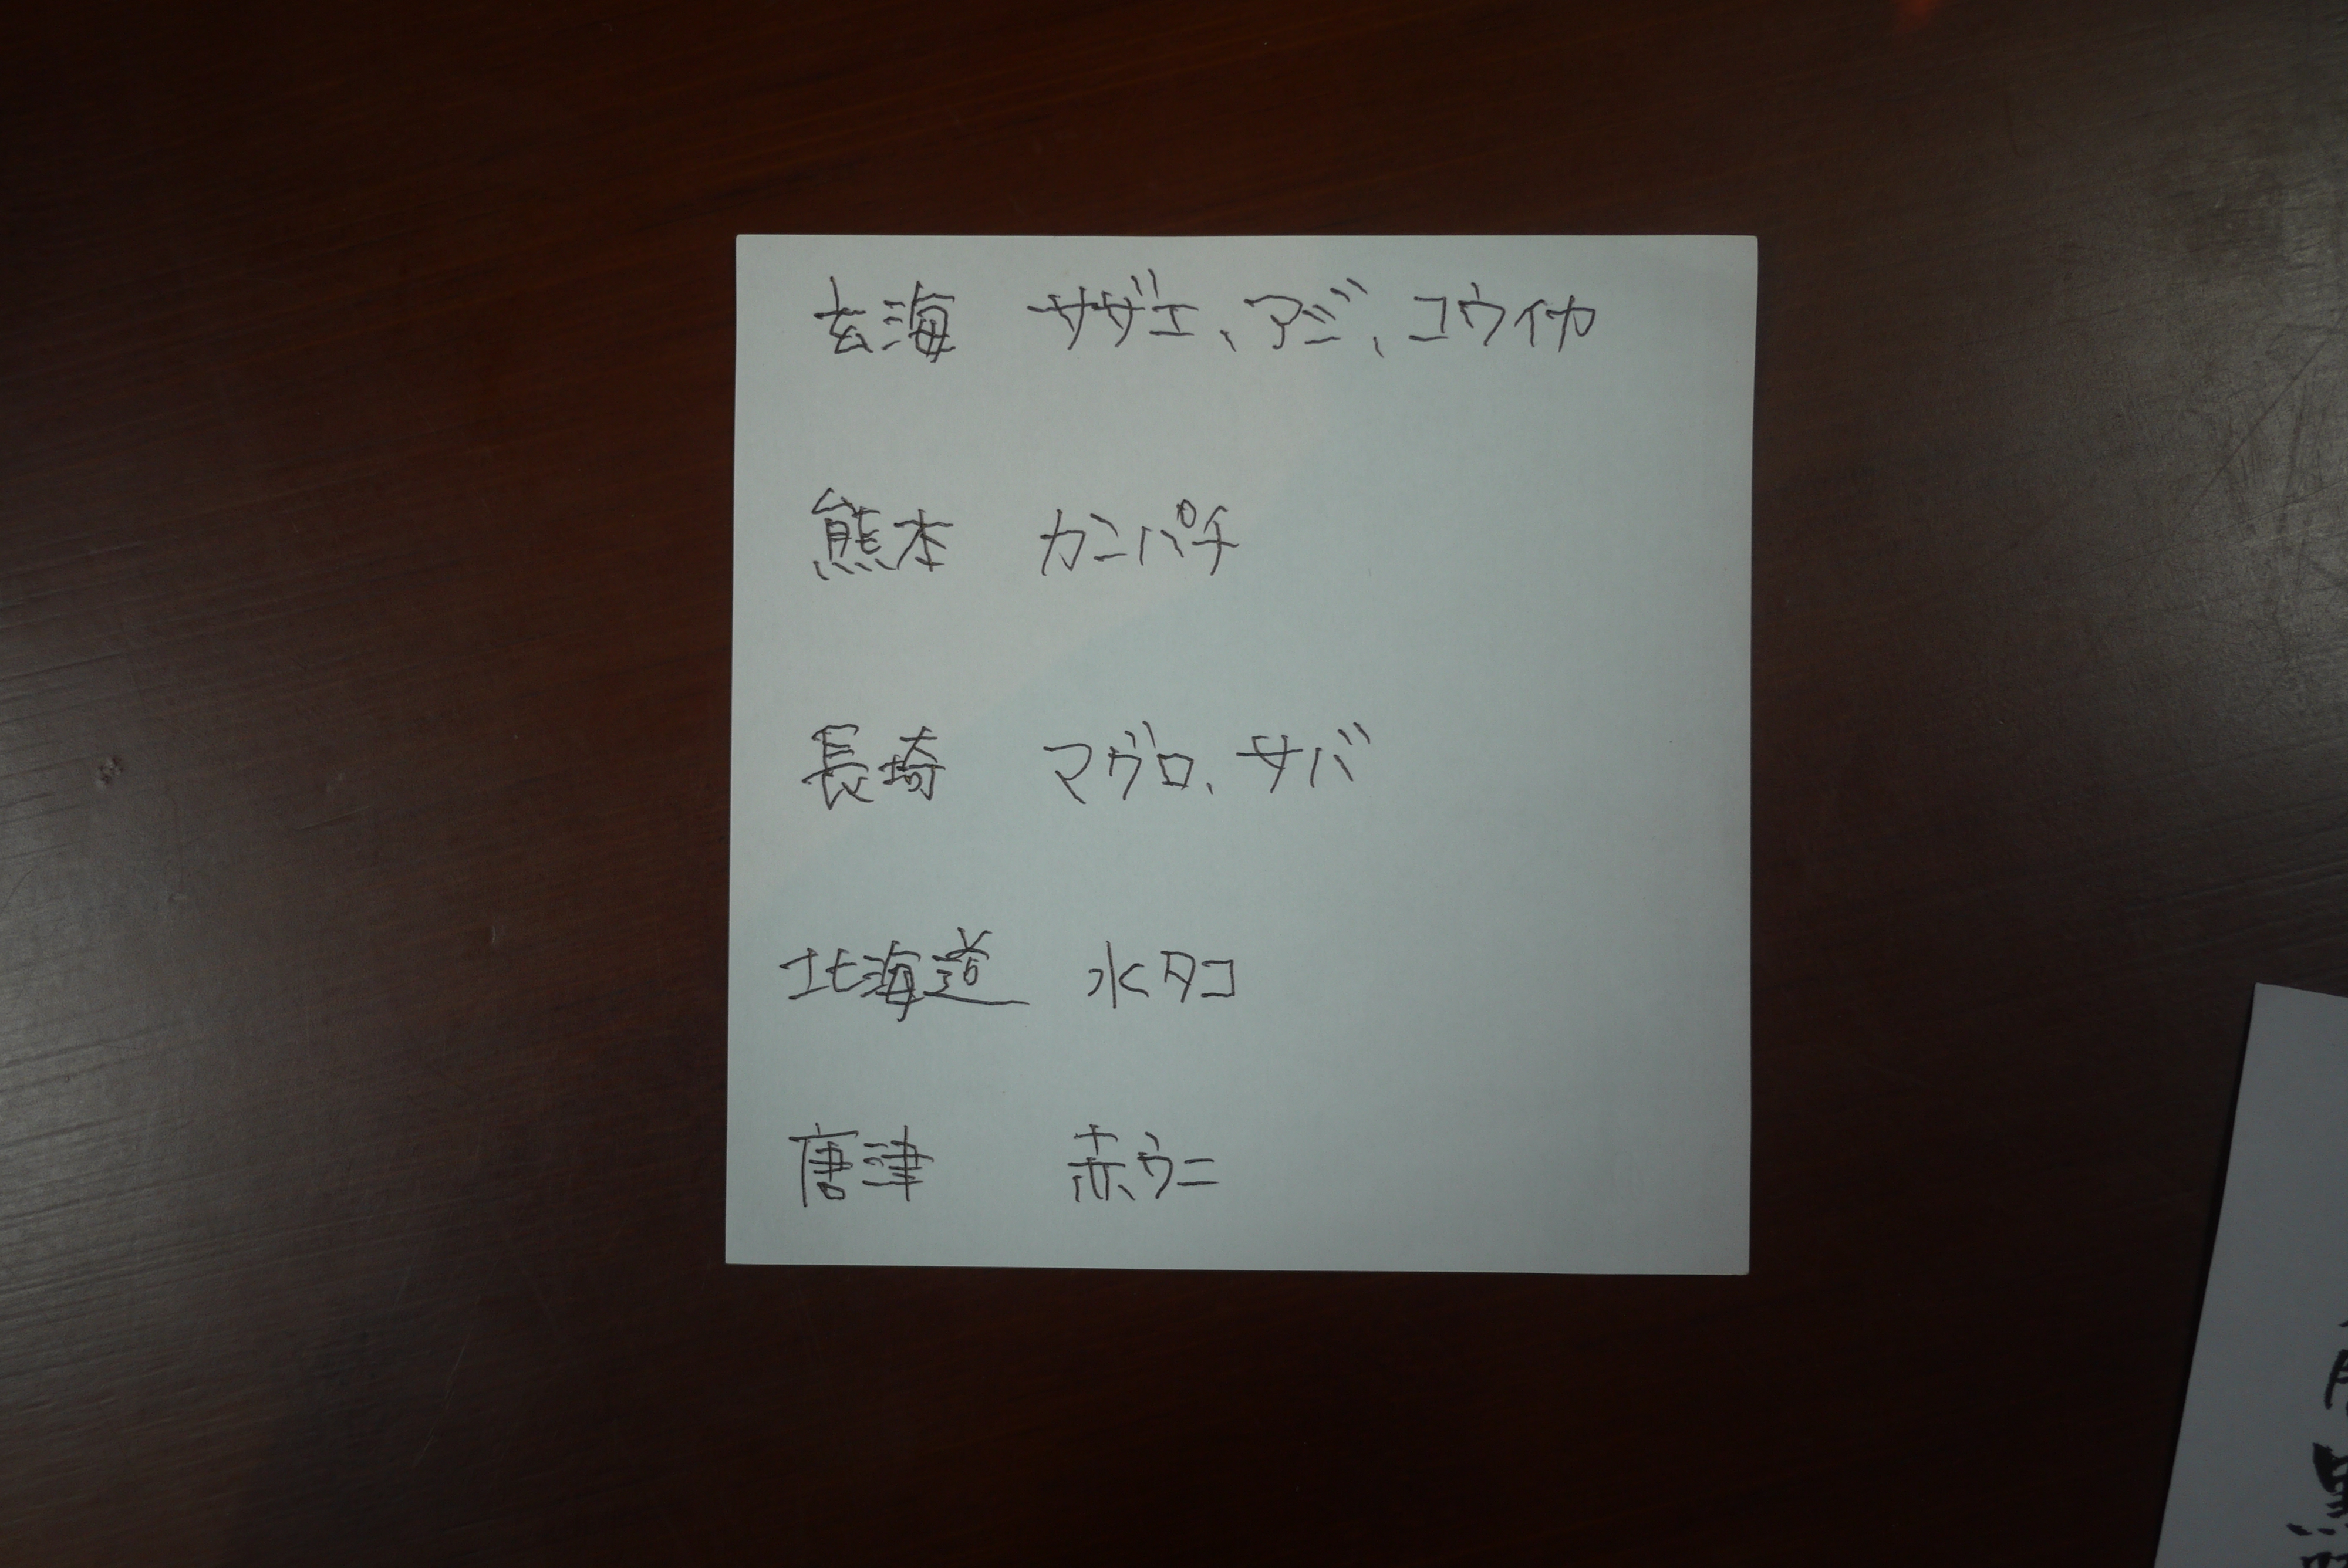 玄海 サザエ、アジ、コウイカ
熊本 カンパチ
長崎 マグロ、サバ
北海道 水タコ
唐津 赤ウニ